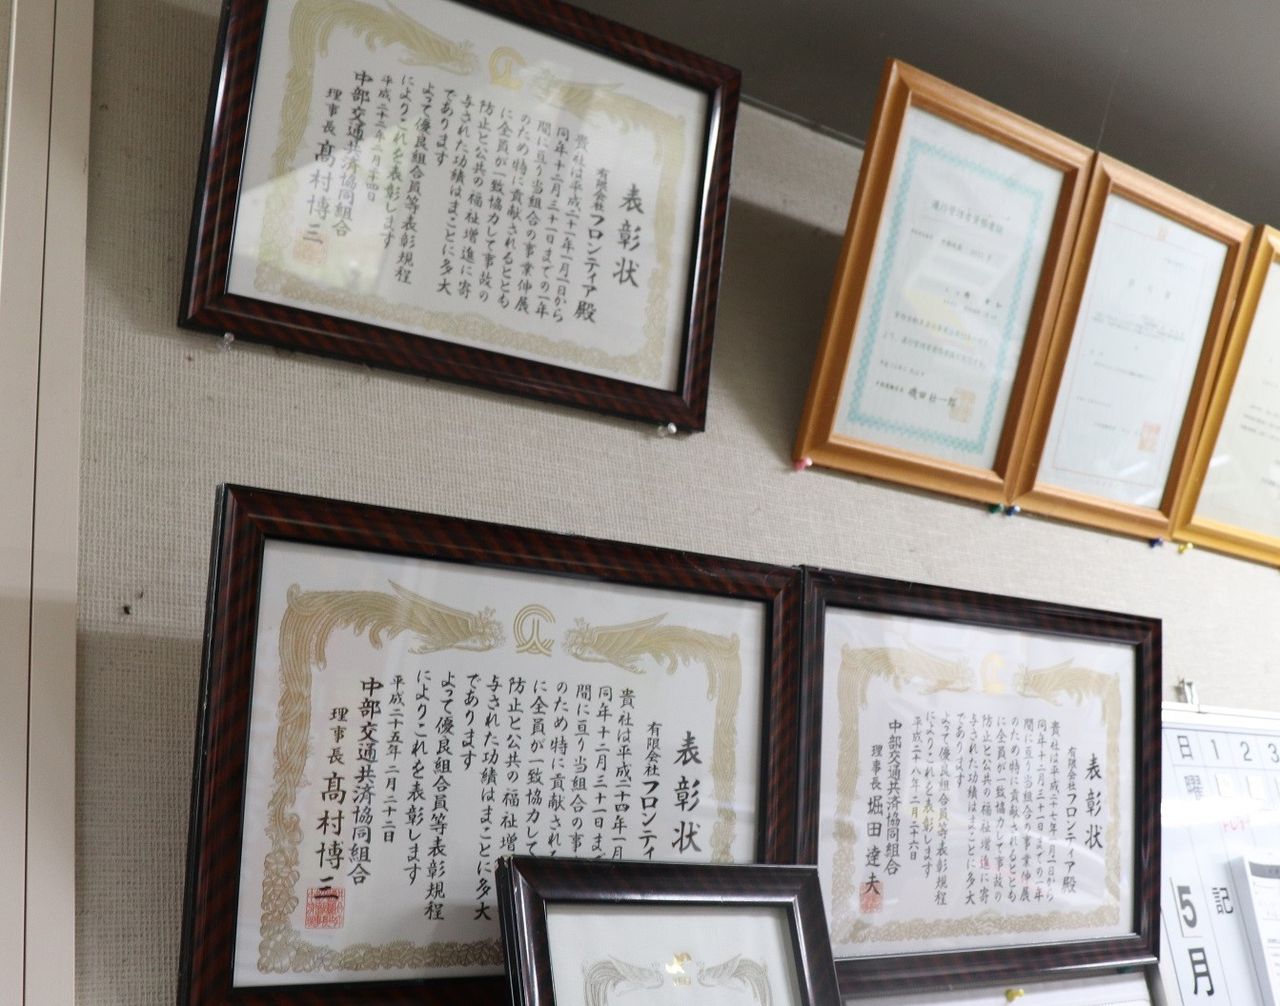 表彰状
有限会社フロンティア殿
貴社は平成二十一年一月一日から
同年十二月三十一日までの一年
間に亘り当組合の事業伸展
のため特に貢献されるととも
に全員が一致協力して事故の
防止と公共の福祉増進に寄
与された功績はまことに多大
であります
よって優良組合員等表彰規程
によりこれを表彰します
平成二十二年二月二十四日
中部交通共済協同組合
理事長 髙村博三
運行管理者資格者証
磯田壮一郎
表彰状
有限会社フロンティ
貴社は平成二十四年一月
同年十二月三十一日まで
間に亘り当組合の事
のため特に貢献される
に全員が一致協力して
防止と公共の福祉増
与された功績はまことに多大
であります
よって優良組合員等表彰規程
によりこれを表彰します
平成二十五年二月二十二日
中部交通共済協同組合
理事長 髙村博三
表彰状
有限会社フロンティア殿
貴社は平成二十七年一月一日から
同年十二月三十一日までの一年
間に亘り当組合の事業伸展
のため特に貢献されるととも
に全員が一致協力して事故の
防止と公共の福祉増進に寄
与された功績はまことに多大
であります
よって優良組合員等表彰規程
によりこれを表彰します
平成二十八年二月二十六日
中部交通共済協同組合
理事長 堀田達夫
日 1 2 3
曜
5月
記